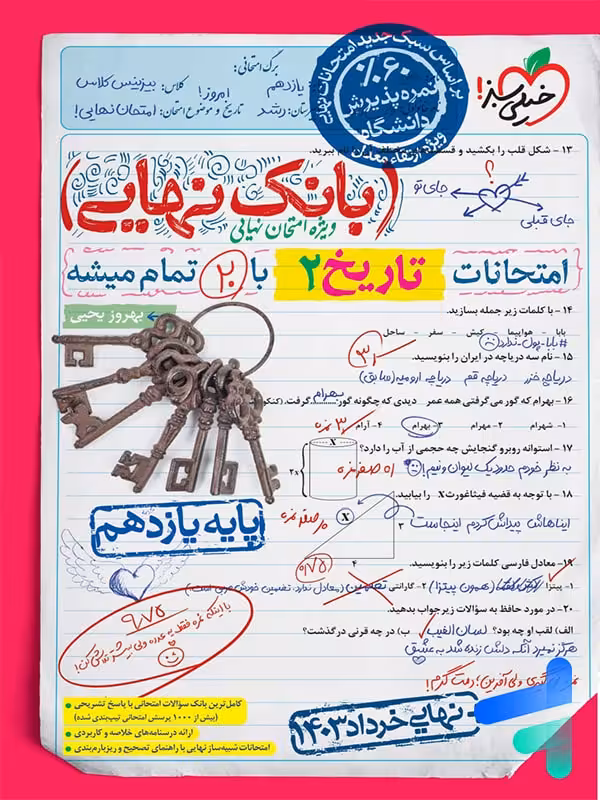 خیلی سبز!
برگ امتحانی:
یازدهم
کلاس: بیزینس کلاس
امروز!
تاریخ و موضوع امتحان: امتحان نهایی!
رشد
بر اساس سبک جدید امتحانات نهایی
٪۶۰
نمره پذیرش
دانشگاه
ویژه ارتقاء معدل
۱۳ - شکل قلب را بکشید و
نام ببرید.
؟
جای تو
جای قبلی
(بانک نهایی)
ویژه امتحان نهایی
امتحانات تاریخ ۲ با ۲۰ تمام میشه
بهروز یحیی
۱۴ - با کلمات زیر جمله بسازید.
بابا - هواپیما - کیش - سفر - ساحل
#بابا_پول_نداره
۱۵ - نام سه دریاچه در ایران را بنویسید.
دریاچه خزر دریاچه قم دریاچه ارومیه (سابق)
۱۶ - بهرام که گور می گرفتی همه عمر دیدی که چگونه گور بهرام گرفت.
۱- شهرام ۲- مهرام ۳- بهرام ۴- آرام
۱۷ - استوانه روبرو گنجایش چه حجمی از آب را دارد؟
به نظر خودم حدود یک لیوان و نیم!
X
۲X
۱۸ - با توجه به قضیه فیثاغورث X را بیابید.
ایناهاش پیداش کردم اینجاست
X
۳
۴
پایه یازدهم
۱۹ - معادل فارسی کلمات زیر را بنویسید.
۱- پیتزا (همون پیتزا) ۲- گارانتی تضمین (معادل ندارد. تضمین خودش عربی است.)
۲۰ - در مورد حافظ به سؤالات زیر جواب بدهید.
الف) لقب او چه بود؟ لسان الغیب ب) در چه قرنی درگذشت؟
هرگز نمیرد آنکه دلش زنده شد به عشق
۹/۷۵
با اینکه نمره فقط یه عدده ولی بیشتر تلاش کن!
ولی آفرین؛ دمت گرم!
نهایی خرداد ۱۴۰۳
کامل‌ترین بانک سؤالات امتحانی با پاسخ تشریحی
(بیش از ۱۰۰۰ پرسش امتحانی تیپ‌بندی شده)
ارائه درسنامه‌های خلاصه و کاربردی
امتحانات شبیه‌ساز نهایی با راهنمای تصحیح و ریزبارم‌بندی